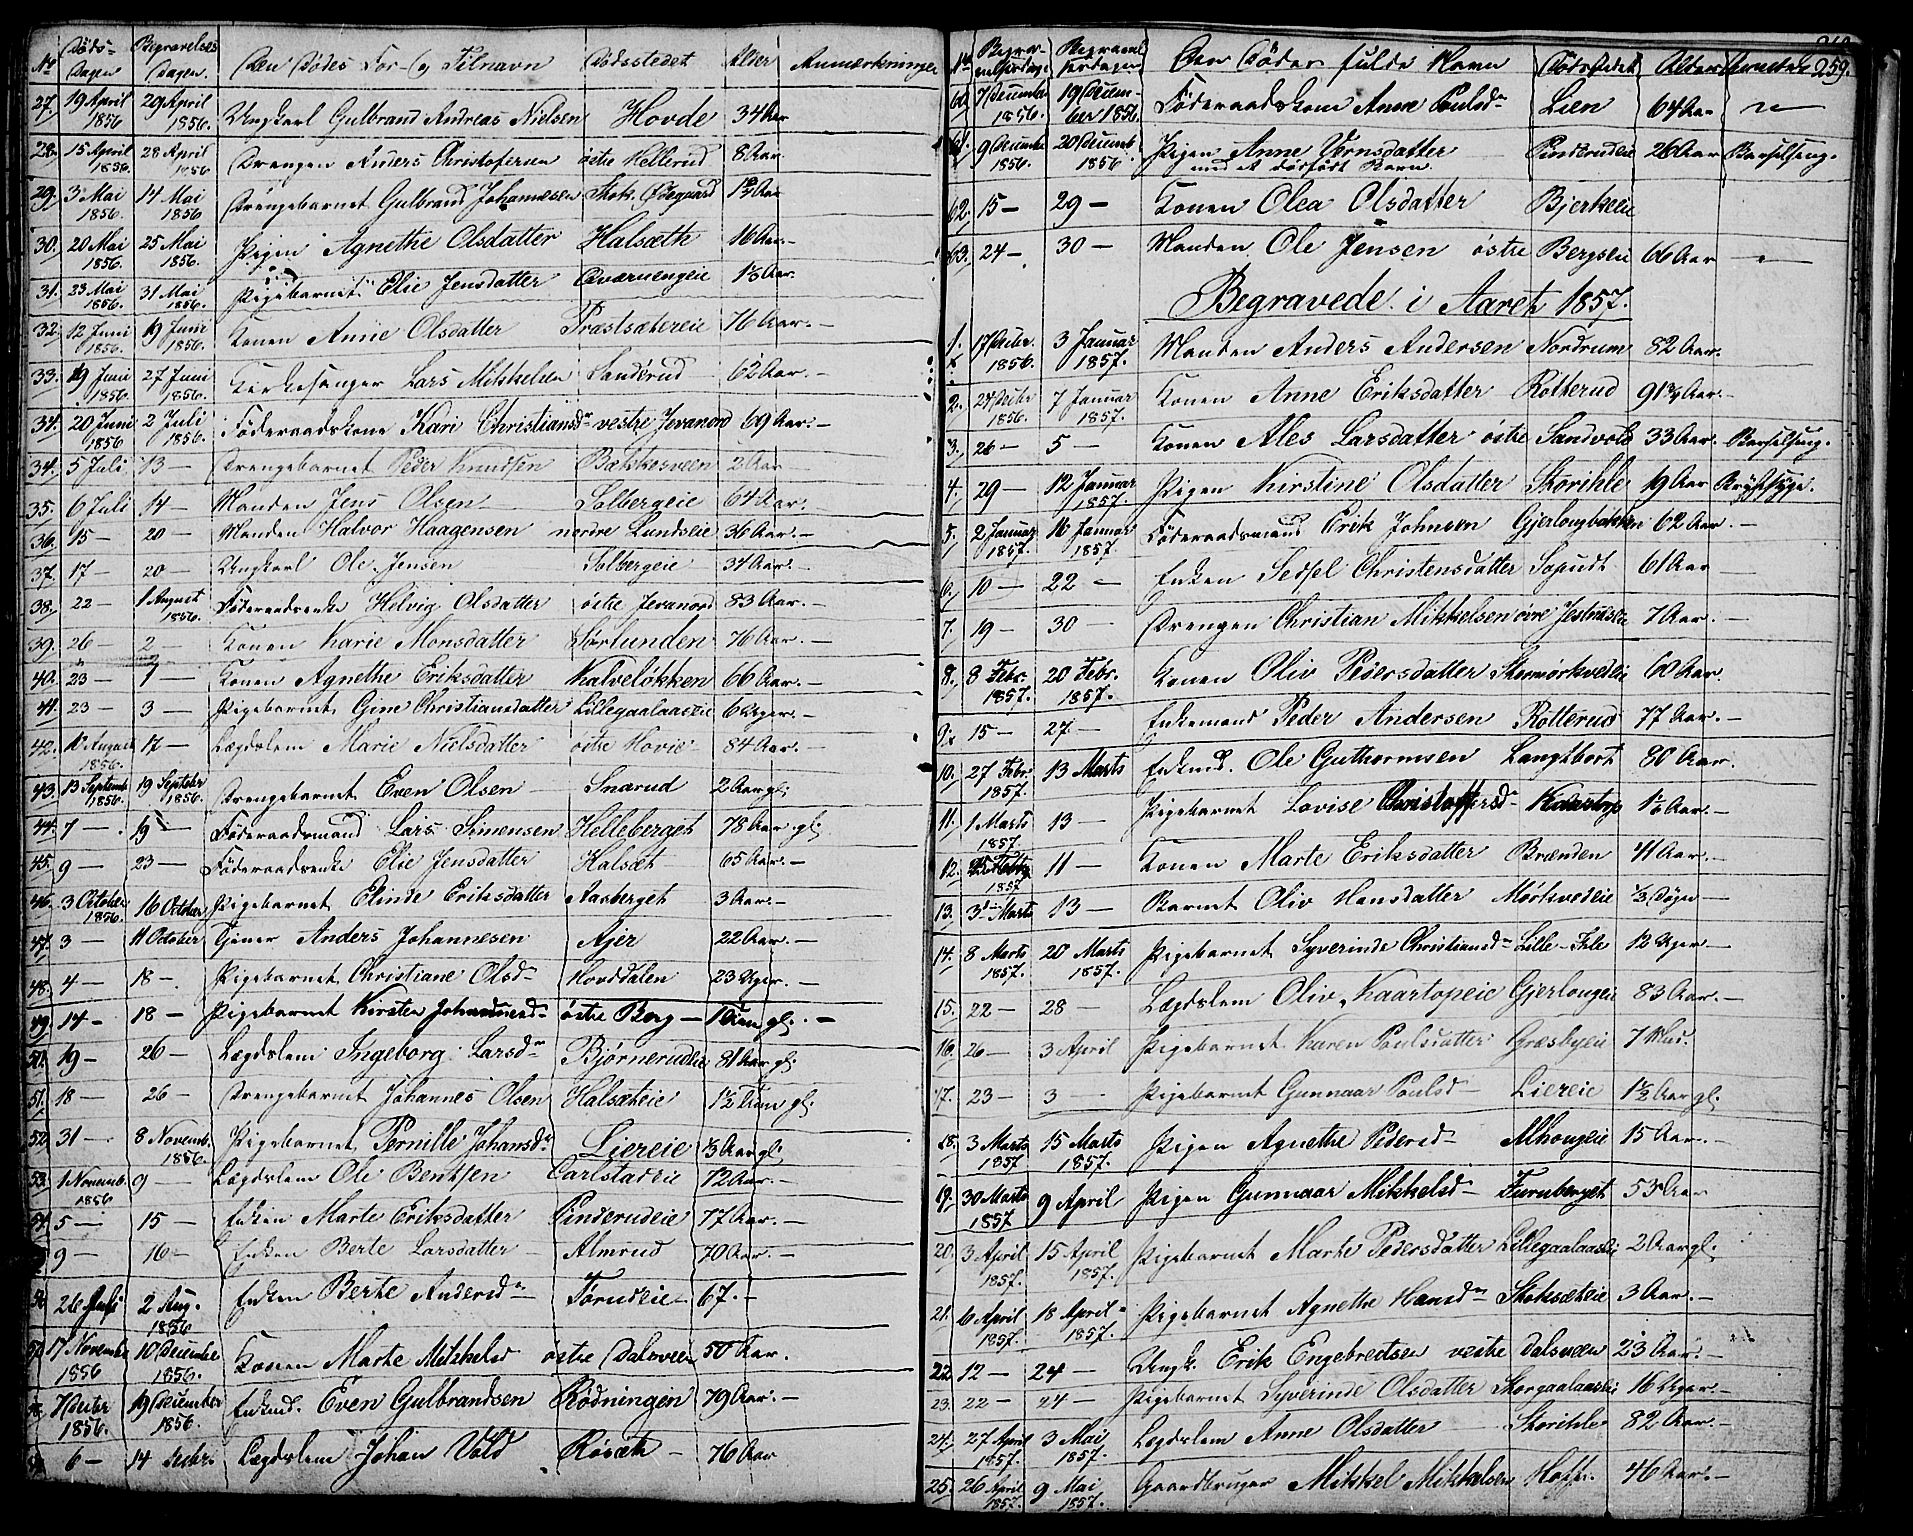 No Døds-Dagen Begravelses Dagen. Den Dødes For- og Tilnavn Dødsstedet Alder Anmærkninger
27. 19 April 1856 29 April 1856. Ungkarl Gulbrand Andreas Nielsen Hovde 34 Aar
28. 15 April 1856 28 April 1856 Drengen Anders Christofersen østre Hellerud 8 Aar.
29. 3 Mai 1856. 14 Mai 1856 Drengebarnet Gulbrand Johannesen Skok. Ødegaard Aar
30. 20 Mai 1856. 25 Mai 1856. Pigen Agnethe Olsdatter Halsæth 16 Aar.
31. 23 Mai 1856. 31 Mai 1856. Pigebarnet Elie Jensdatter Qværnengeie Aar.
32. 12 Juni 1856. 19 Juni 1856. Konen Anne Olsdatter Præstsætereie 76 Aar. —
33. 19 Juni 1856. 27 Juni 1856. Kirkesanger Lars Mikkelsen Sanderud 62 Aar. —
34. 20 Juni 1856 2 Juli 1856. Føderaadskone Kari Christiansd. vestre Jevanord 69 Aar. —
34. 5 Juli 13 — Drengebarnet Peder Knudsen Bætskesveen 2 Aar
35. 6 Juli 14 — Manden Jens Olsen Solbergeie 64 Aar.
36. 15 — 20 — Manden Halvor Haagensen nordre Lundseie 36 Aar. —
37. 17 — 20 — Ungkarl Ole Jensen Solbergeie 34 Aar. —
38. 22 — 1 August 1856. Føderaadsenke Helvig Olsdatter østre Jevanord 83 Aar. —
39. 26 — 2 — Konen Karie Monsdatter Sørlunden 76 Aar. —
40. 23 — 1 — Konen Agnethe Eriksdatter Kalveløkken 66 Aar. —
41. 23 — 3 — Pigebarnet Gine Christiansdatter Lillegaalaaseie 6 Uger. —
42. August 1856. 17 — Lægdslem Marie Nielsdatter østre Hovie 84 Aar. —
43. 13 Septemb 1856. 19 Septber 1856. Drengebarnet Even Olsen Snærud 2 Aar gl.
44. 7 — 19 — Føderaadsmand Lars Simensen Helleberget 78 Aar gl.
45. 9 — 23 — Føderaadsenke Elie Jensdatter Halsæt 65 Aar. —
46. 3 October 1856. 16 October Pigebarnet Elinde Eriksdatter Aasberget 3 Aar. —
47. 3 — 11 October Tjener Anders Johannesen Ajer 22 Aar. —
48. 4 — 18 — Pigebarnet Christiane Olsd. Hovddalen 23 Uger. —
49. 14 — 18 — Pigebarnet Kirsten Johannesd. østre Berg — 1 Time gl. —
50. 19 — 26 — Lægdslem Ingeborg Larsd. Bjørnerudeie 81 Aar gl.
51. 18 — 26 — Drengebarnet Johannes Olsen Halsæteie 1½ Time gl.
52. 31 — 8 Novemb. 1856. Pigebarnet Pernille Johansd. Liereie Aar gl.
53. 1 Novemb. 1856 9 — Lægdslem Ole Bentsen Carlstadeie 72 Aar. —
54. 5 — 15 — Enken Marte Eriksdatter Pinderudeie 77 Aar. —
9 — 16 — Enken Berte Larsdatter Almrud 70 Aar. —
26 Juli 2 Aug. 1856 Enken Berte Andersd. Torudeie 67 —
17 Novembe 1856 10 Decembe 1856. Konen Marte Mikkelsd østre Dalsveen 50 Aar.
7 Decbr 1856. 19 December 1856. Enkmd. Even Gulbrandsen Rødningen 79 Aar. —
6 — 14 Decbr. Lægdslem Johan Vold Røsæt — 76 Aar
No Begravelsesdagen Den Dødes fulde Navn Dødsstedet Alder 259.
60. 7 Decembe 1856. 19 December 1856. Føderaadskone Anne Poulsd. Lien 64 Aar —
61. 9 Decembe 1856. 20 Decemb. 1856 Pigen Anne Vernsdatter Pinderudeie 26 Aar Barselseng.
med et dødfødt Barn.
62. 15 — 29 — Konen Olea Olsdatter Bjerkeeie
63. 24 — 30 — Manden Ole Jensen østre Bergseie 66 Aar —
Begravede i Aaret 1857.
1. 17 Decbr. 1856. 3 Januar 1857. Manden Anders Andersen Nordrum 82 Aar.
2. 24 Decbr 1856. 7 Januar 1857. Konen Anne Eriksdatter Rotterud Aar. —
3. 26 — 5 — Konen Ales Larsdatter østre Sandvold 33 Aar. Barselseng.
4. 29 — 12 Januar 1857. Pigen Kirstine Olsdatter Skorikle 19 Aar Brystsyge.
5. 2 Januar 1857. 16 Januar 1857. Føderaadsmand Erik Johnsen Gjerlougbakken 62 Aar. —
6. 10 — 22 — Enken Sedsel Christensdatter Sopudt 61 Aar —
7. 19 — 30 — Drengen Christian Mikkelsen øvre 7 Aar. —
8. 8 Febr. 1857. 20 Febr. 1857. Konen Oliv Pedersdatter Stormørkvedeie 60 Aar.
9. 15 — 27. — Enkemand Peder Andersen Rotterud 77 Aar. —
10. 27 Febr. 1857. 13 Marts Enkmd. Ole Guthormsen Langtbort 80 Aar.
11. 1 Marts 1857. 13 — Pigebarnet Lovise Christoffersd. Aar. —
12. 1857 11 — Konen Marte Eriksdatter Brænden 41 Aar. —
13. 3 Marts 13 — Barnet Oliv Hansdatter Mørkvedeie ⅓ Døgn —
14. 8 Marts 1857. 20 Marts 1857. Pigebarnet Syverinde Christiansd. Lille-Ihle 12 Uger —
15. 22 — 28 Lægdslem Oliv Kaartopeie Gjerlougeie 83 Aar. —
16. 26 — 3 April Pigebarnet Karen Poulsdatter Græsbyeie 7 Md.
17. 23 — 3 — Pigebarnet Gunnaar Poulsd — Liereie 1½ Aar gl.
18. 3 Marts 1857 15 Marts 1857. Pigen Agnethe Pedersd — Alhougeie 15 Aar. —
19. 30 Marts 1857 9 April Pigen Gunnaar Mikkelsd — Furuberget 53 Aar
20. 3 April 1857. 15 April 1857. Pigebarnet Marte Pedersdatter Lillegaalaaseie 2 Aar gl.
21. 6 April 1857. 18 April 1857. Pigebarnet Agnethe Hansd. Skoksæteie 3 Aar. —
22 12 — 24 — Ungk. Erik Engebretsen vestre dalsveen 23 Aar. —
23. 22 — 24 — Pigebarnet Syverinde Olsdatter Storgaalaaseie 16 Uger. —
24. 27 April 1857. 3 Mai 1857. Lægdslem Anne Olsdatter Skorikle 82 Aar. —
25. 26 April 1857. 9 Mai 1857. Gaardbruger Mikkel Mikkelsen Hoff. 46 Aar. —